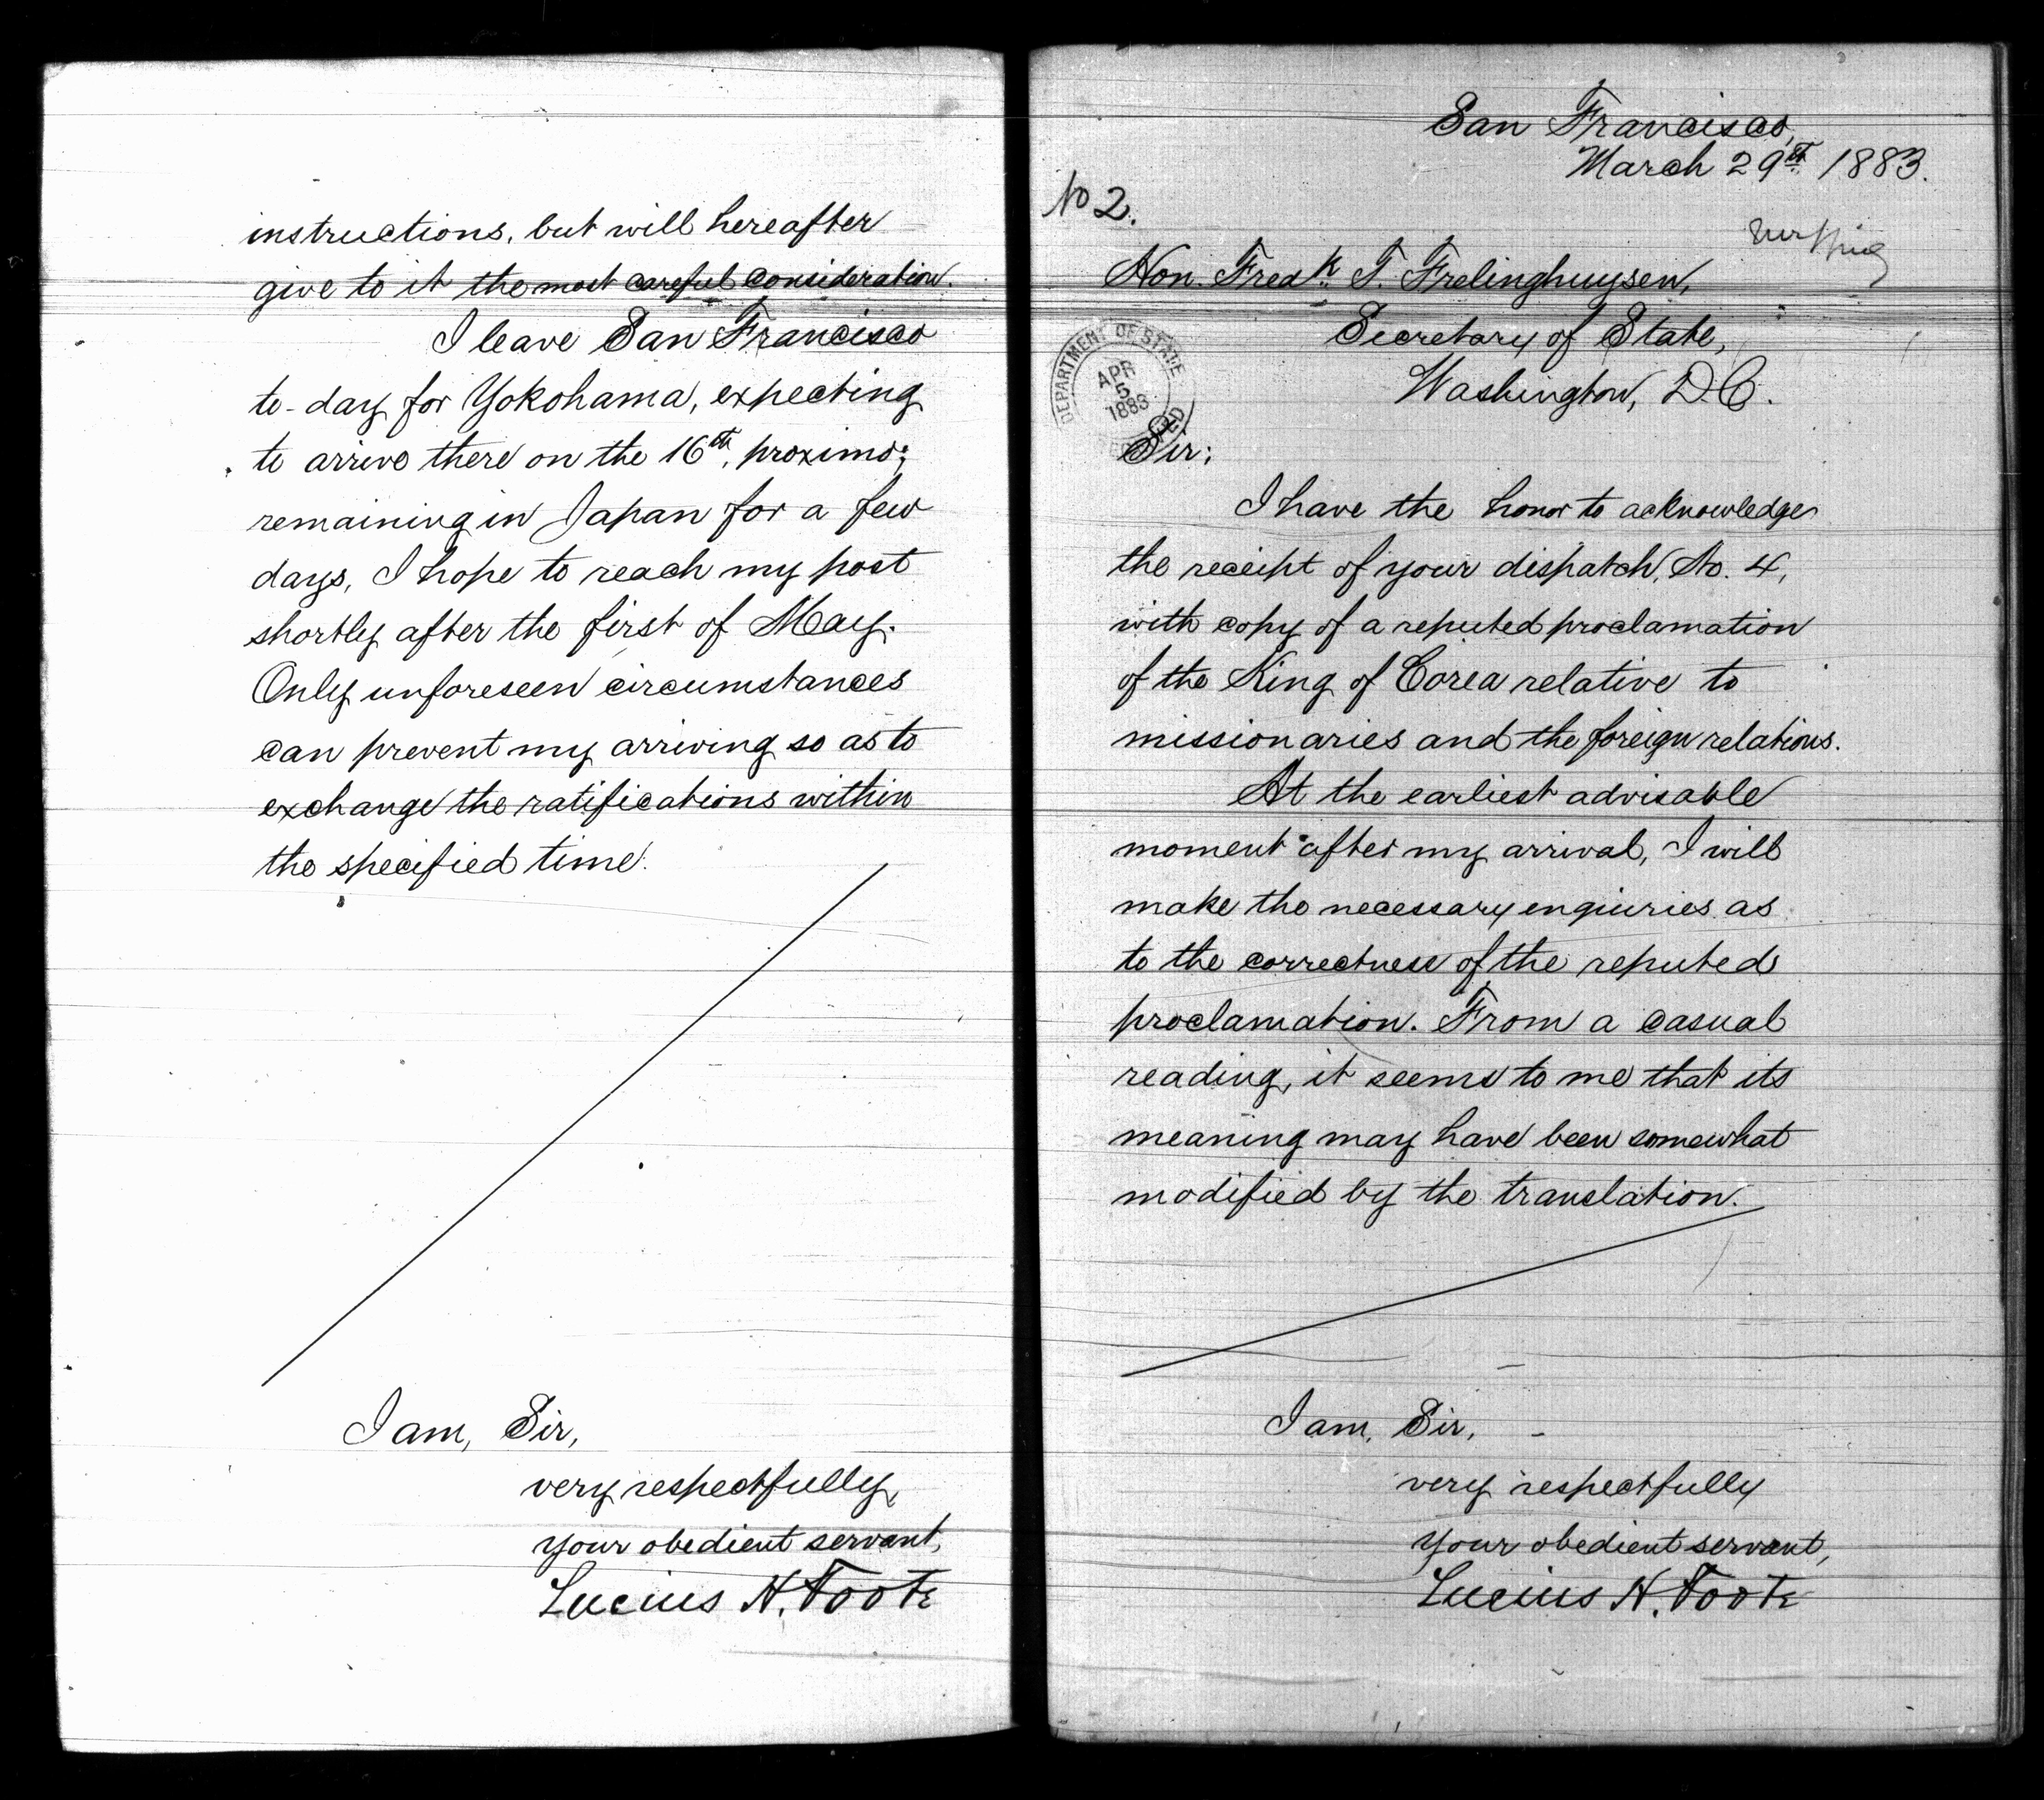 instructions, but will hereafter
give to it the most careful consideration.
I leave San Francisco
to-day for Yokohama, expecting
to arrive there on the 16th, proximo;
remaining in Japan for a few
days, I hope to reach my post
shortly after the first of May.
Only unforeseen circumstances
can prevent my arriving so as to
exchange the ratifications within
the specified time.
I am, Sir,
very respectfully,
your obedient servant,
Lucius H. Foote
San Francisco,
March 29th 1883.
No 2.
Hon. Fredk. T. Frelinghuysen,
Secretary of State,
Washington, D.C.
DEPARTMENT OF STATE
APR
5
1883
Sir:
I have the honor to acknowledge
the receipt of your dispatch, No. 4,
with copy of a reputed proclamation
of the King of Corea relative to
missionaries and the foreign relations.
At the earliest advisable
moment after my arrival, I will
make the necessary enquiries as
to the correctness of the reputed
proclamation. From a casual
reading, it seems to me that its
meaning may have been somewhat
modified by the translation.
I am, Sir,
very respectfully
your obedient servant,
Lucius H. Foote